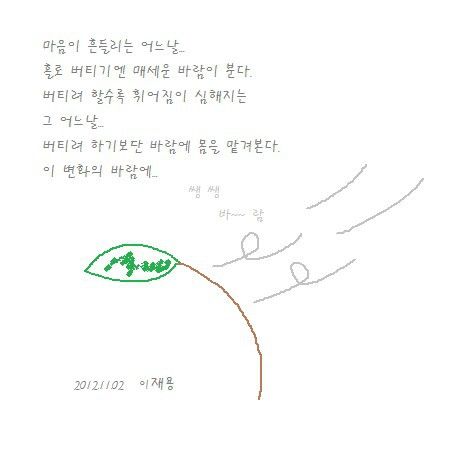 마음이 흔들리는 어느날...
홀로 버티기엔 매세운 바람이 분다.
버티려 할수록 휘어짐이 심해지는
그 어느날...
버티려 하기보단 바람에 몸을 맡겨본다.
이 변화의 바람에...
쌩 쌩
바~~ 람
2012.11.02 이재용